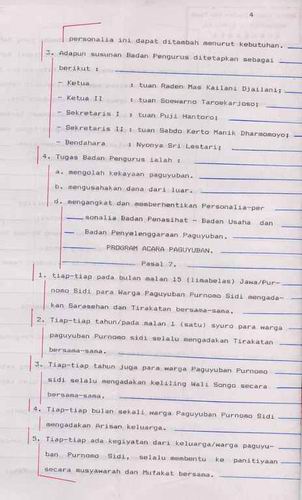 4
personalia ini dapat ditambah menurut kebutuhan.
3. Adapun susunan Badan Pengurus ditetapkan sebagai
berikut :
- Ketua : tuan Raden Mas Kailani Djailani;
- Ketua II : tuan Soewarno Taroekarjoso;
- Sekretaris I : tuan Puji Hantoro;
- Sekretaris II : tuan Sabdo Kerto Manik Dharmomoyo;
- Bendahara : Nyonya Sri Lestari;
4. Tugas Badan Pengurus ialah :
a. mengolah kekayaan paguyuban.
b. mengusahakan dana dari luar.
d. mengangkat dan memberhentikan Personalia-per
sonalia Badan Penasihat - Badan Usaha dan
Badan Penyelenggaraan Paguyuban.
PROGRAM ACARA PAGUYUBAN.
Pasal 7.
1. tiap-tiap pada bulan malan 15 (limabelas) Jawa/Pur-
nomo Sidi para Warga Paguyuban Purnomo Sidi mengada-
kan Sarasehan dan Tirakatan bersama-sama.
2. Tiap-tiap tahun/pada malan 1 (satu) syuro para warga
paguyuban Purnomo sidi selalu mengadakan Tirakatan
bersama-sama.
3. Tiap-tiap tahun juga para warga Paguyuban Purnomo
sidi selalu mengadakan keliling Wali Songo secara
bersama-sama.
4. Tiap-tiap bulan sekali warga Paguyuban Purnomo Sidi
mengadakan Arisan keluarga.
5. Tiap-tiap ada kegiyatan dari keluarga/warga paguyu-
ban Purnomo Sidi, selalu membentu ke panitiyaan
secara musyawarah dan Mufakat bersama.